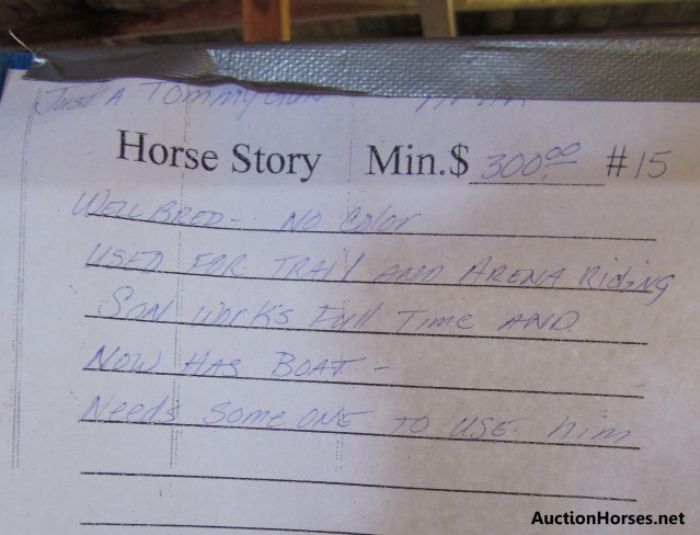 Just A TommyGun
Horse Story Min.$ 300.00 #15
WELL BRED - NO Color
USED FOR TRAIl AND ARENA RIDING
SON works Full Time AND
NOW HAS BOAT -
Needs Some ONE TO USE him
AuctionHorses.net